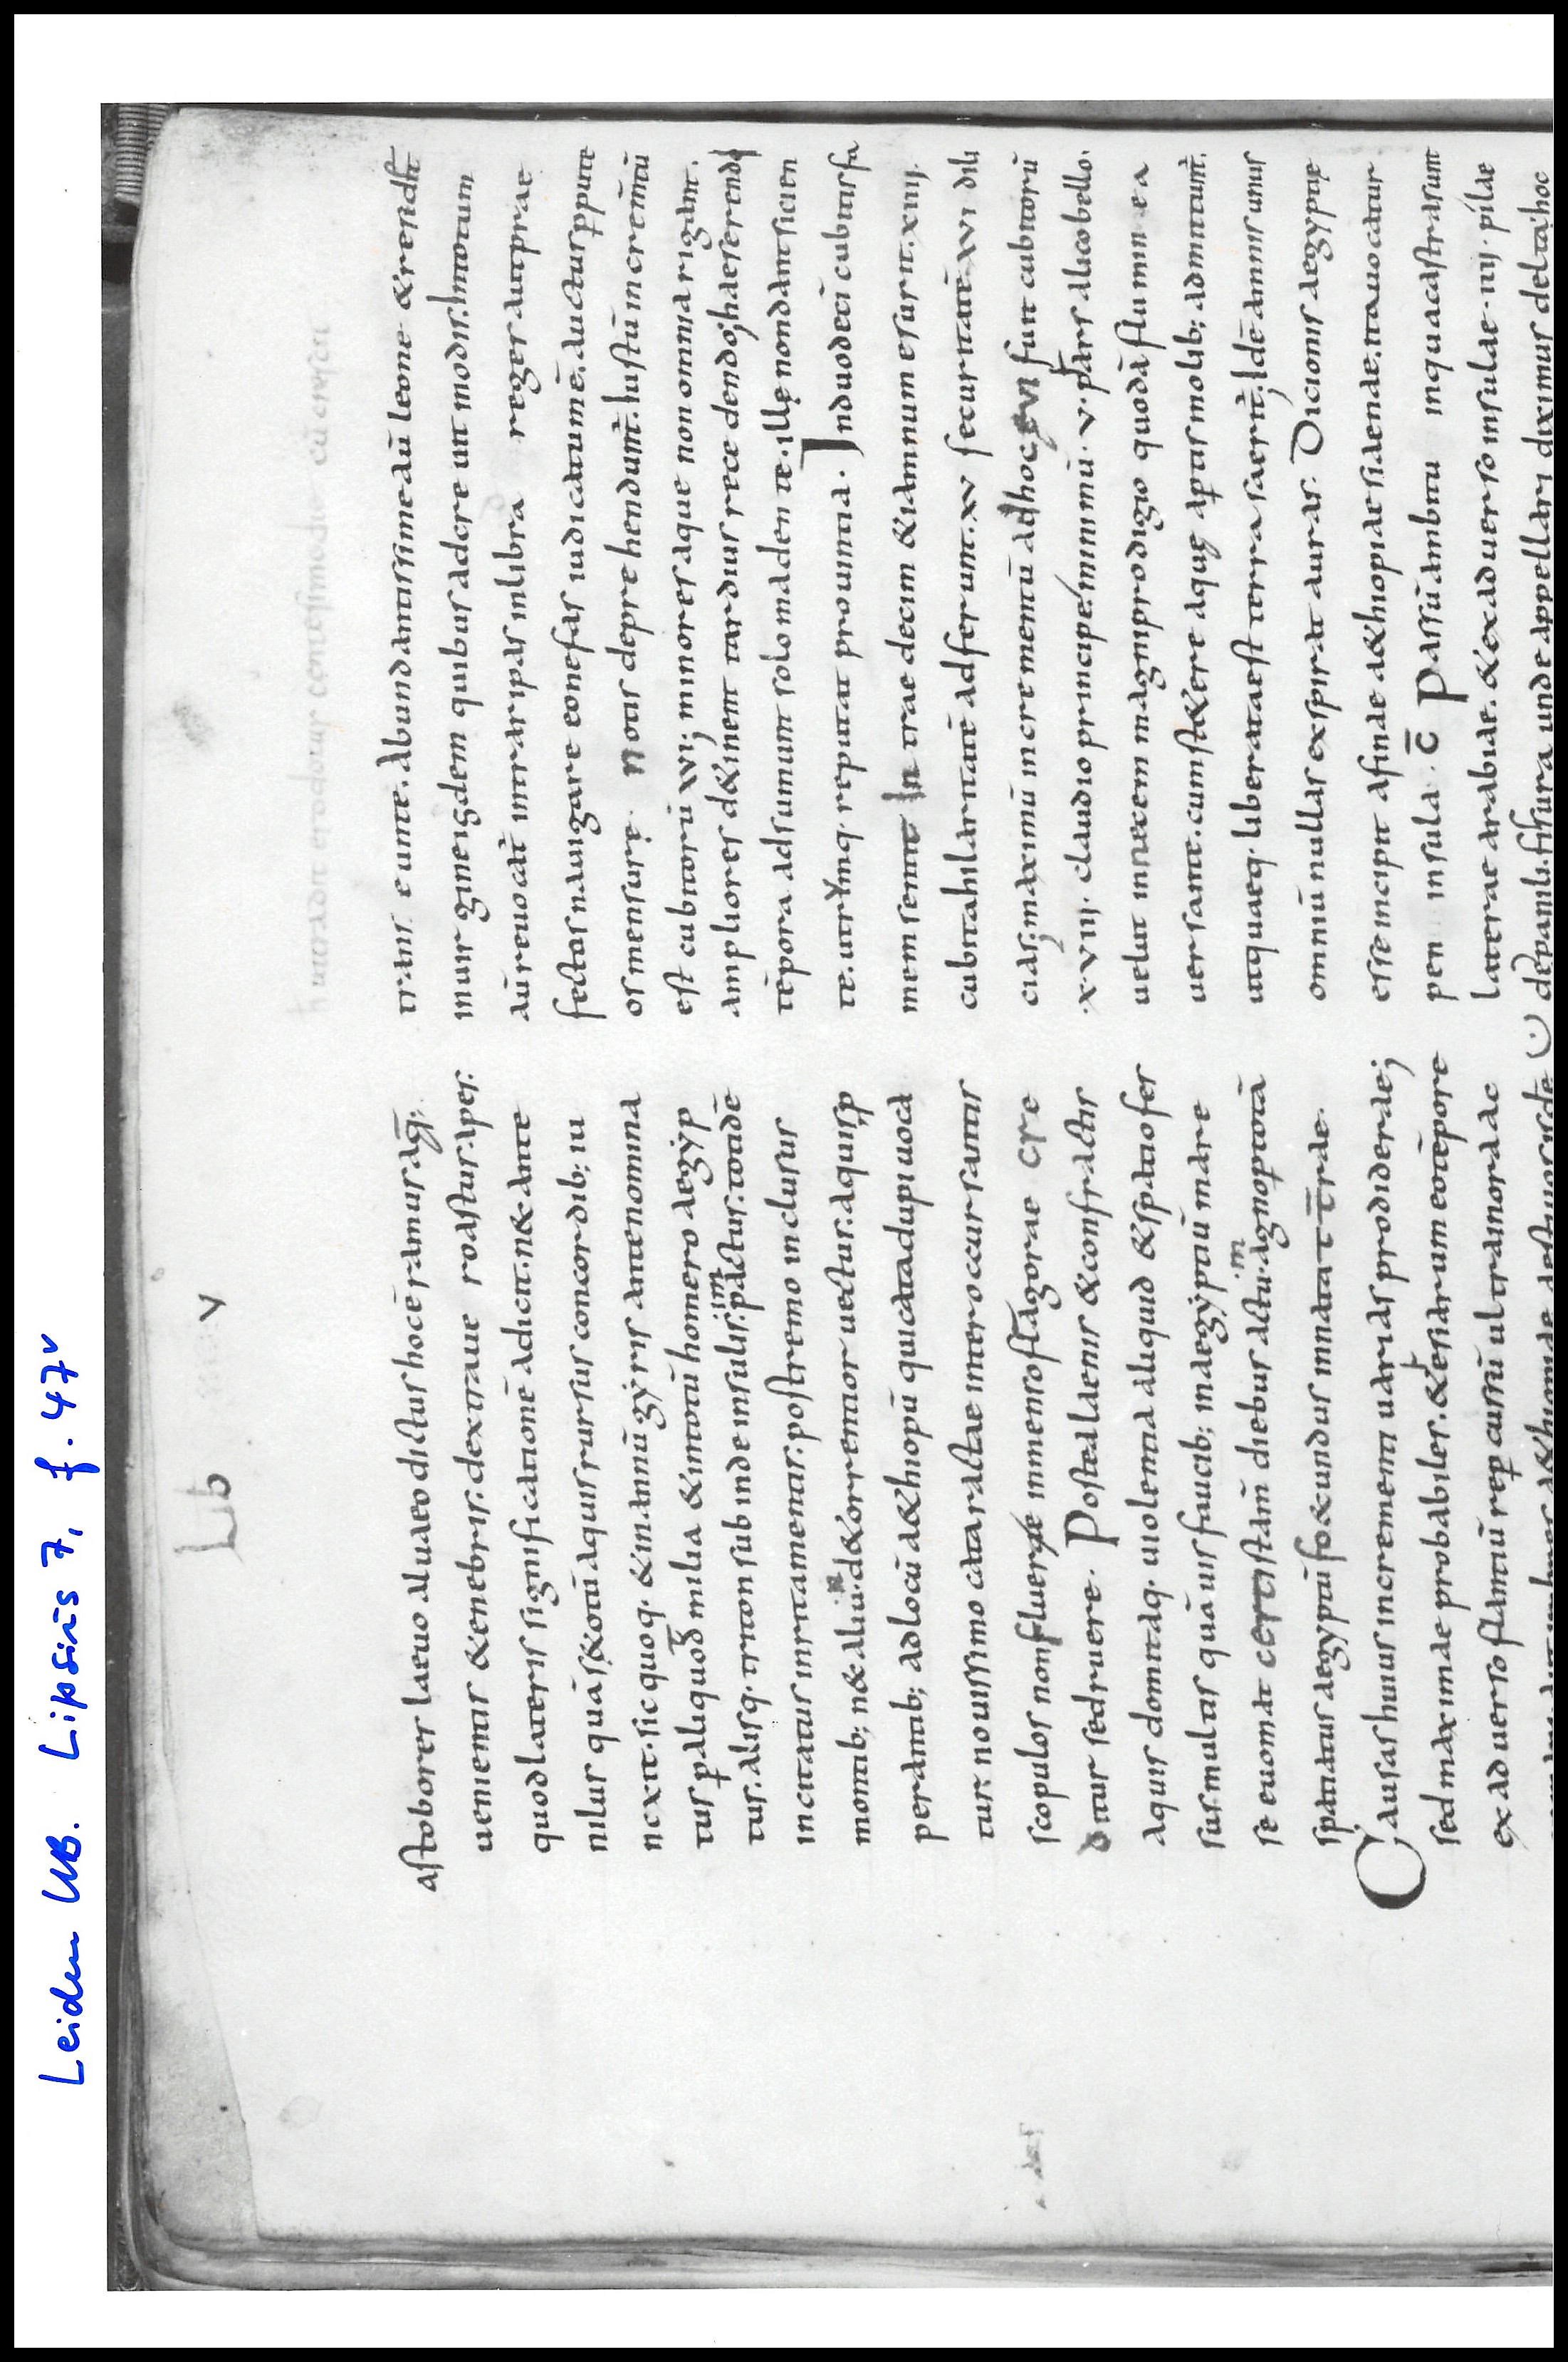 Leiden UB. Lipsius 7, f. 47v
Lib V
astoborer laeuo aluaeo dictus hocē ramus aq̄;
uenientis &enebris. dextraue roastus. aper.
quod lateris significationē adicit. n& ante
nilus quā s&otū aquis rursus concordib; iu
nexit. sic quoq. &inannū gẏris antenomina
tus p̱ aliquod milia &intotū homero aegẏp
tus. alisq. triton subinde insulis. impactus. totidē
incitatus inritamentis. postremo inclusus
montib; n&aliu.m d&orrentior uectus. aquis p̱
perantib; adlocū a&hiopū quicatadupi uoca
tur. nouissimo cataractae inter occursantis
scopulos nonfluere inmenso fragorae cre
ditur sedruere. Postea laenis &confractis
aquis domitaq. uiolentia aliquid &spatio fes
sus multis quāuis faucib; inaegẏptiū mare
se euomat certistam̄ diebus actu.m. agnop̱totā
spatiatus aegyptū fo&undus innatat t̄rae.
Causas huius incrementi uarias prodiderae;
sed maximae probabiles. &esiarum eotēpore
ex aduerso flantiū rep̱ cursū ultramorad ac
trans eunte. abundantissimeaū leone &residēt
inuir gineisdem quibus adcre uit modis. Intotum
aūreuocat̄ intraripas inlibra reges autprae
fectos nauigare eonefas iudicatum ē. auctus p̱pute
os mensurę notis depre hendunt̄. Iustū in crem̄tū
est cubitorū xvi; minores aque non omnia rigant.
ampliores d&inent tardius rece dendo; haeserendi
tēpora adsumunt solo maden te. illę nondant sicien
te. utrūmq. reputat prouintia. Induodeci cubitis fa
mem sentit In trae decim &iamnum esurit. xiiij.
cubita hilaritatē adferunt. xv securitatē xvi dili
cias; maximū incrementū adhoc evi fuit cubitorū
x.viij. claudio principe. minimū. v. pars alicobello.
uelut innecem magniprodigio quodā flumin e a
uersante. cumst&ere aquę aptis molib; admittunt̄.
utquaeq. liberataest terra saerit̄. Idē amnis unus
omniū nullas exspirat auras. Dicionis aegyptię
esse incipit afinae a&hiopiae siaenae. ita uocatur
pen insula. C̄ Passū ambitu inqua castra sunt
laterae arabiae. &exaduerso insulae. iiij. pilae
depanib. fissura unde appellari diximus delta; hoc